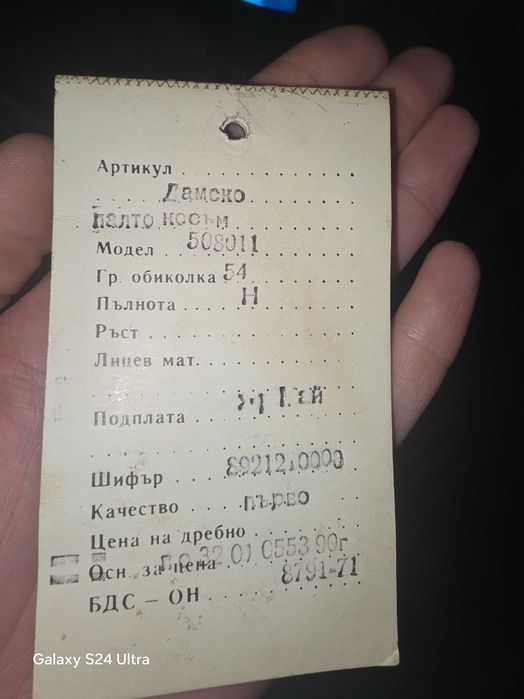 Артикул
Дамско
палто косъм
Модел 508011
Гр. обиколка 54
Пълнота Н
Ръст
Лицев мат.
Подплата
Шифър 8921210000
Качество първо
Цена на дребно
Осн. за цена 32 01 0553 90г
БДС – ОН 8791-71
Galaxy S24 Ultra